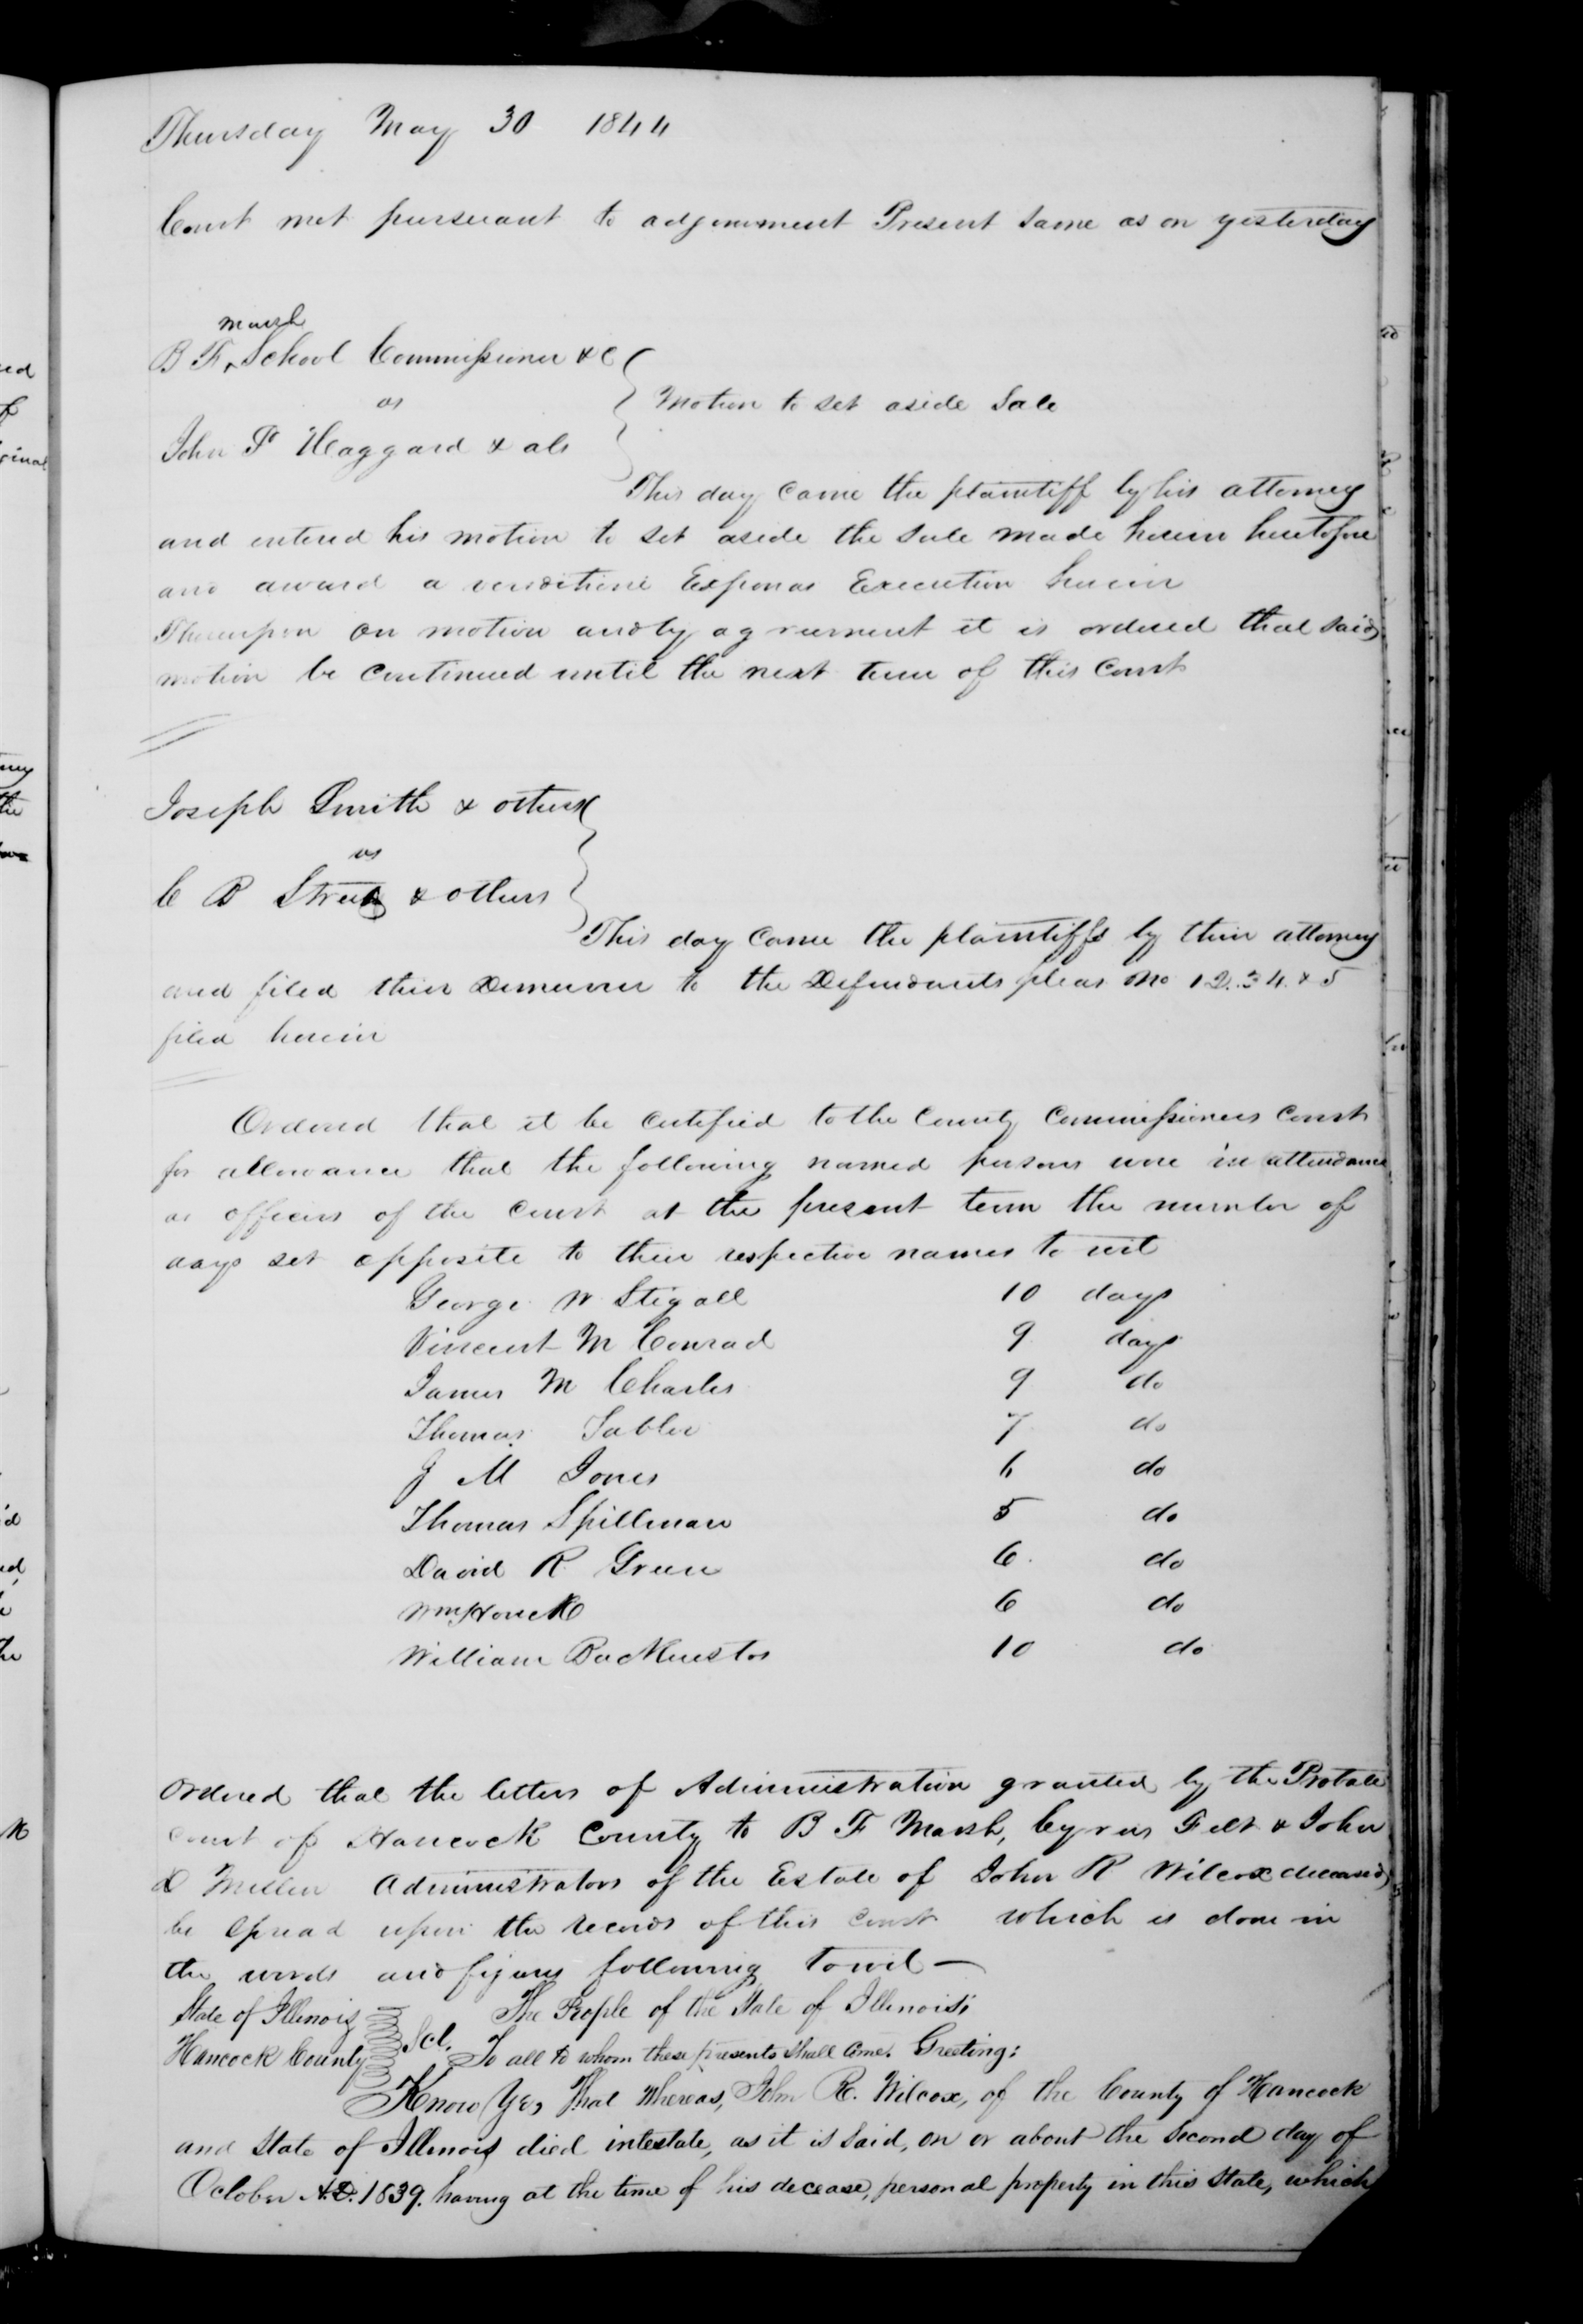 Thursday May 30 1844
Court met pursuant to adjournment Present same as on yesterday
Marsh
B F, School Commissioner &c
vs
Motion to set aside Sale
John P Haggard & als
This day came the plaintiff by his attorney
and entered his motion to set aside the sale made herein heretofore
and award a venditioni Exponas Execution herein
Thereupon on motion and by agreement it is ordered that said
motion be continued until the next term of this Court
Joseph Smith & others
vs
C B Street & others
This day came the plaintiffs by their attorney
and filed their Demurrer to the Defendants pleas No 1 2. 3 4. & 5
filed herein
Ordered that it be certified to the County Commissioners Court
for allowance that the following named persons were in attendance
as officers of the Court at the present term the number of
days set opposite to their respective names to wit
George W Stigall 10 days
Vincent M Conrad 9 days
James M Charles 9 do
Thomas Tabler 7 do
J M Jones 6 do
Thomas Spillman 5 do
David R Green 6 do
Wm Houck 6 do
William Backenstos 10 do
Ordered that the letters of Administration granted by the Probate
Court of Hancock County to B F Marsh, Cyrus Felt & John
D Miller Administrators of the Estate of John R Wilcox deceased
be spread upon the records of this Court which is done in
the words and figures following towit —
State of Illinois The People of the State of Illinois;
Hancock County Sct. To all to whom these presents shall come. Greeting:
Know Ye, That Whereas, John R. Wilcox, of the County of Hancock
and State of Illinois died intestate, as it is said, on or about the Second day of
October A.D. 1839. having at the time of his decease, personal property in this State, which